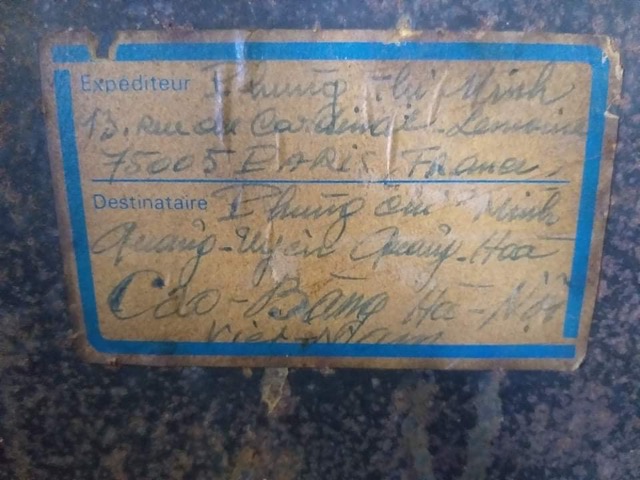 Expéditeur Phung Thi Minh
13. Rue du Cardinal-Lemoine
75005 PARIS France
Destinataire Phung Minh
Quang-Uyên Quang-Hoa
Cao-Bang Ha-Nôi
Viet-Nam